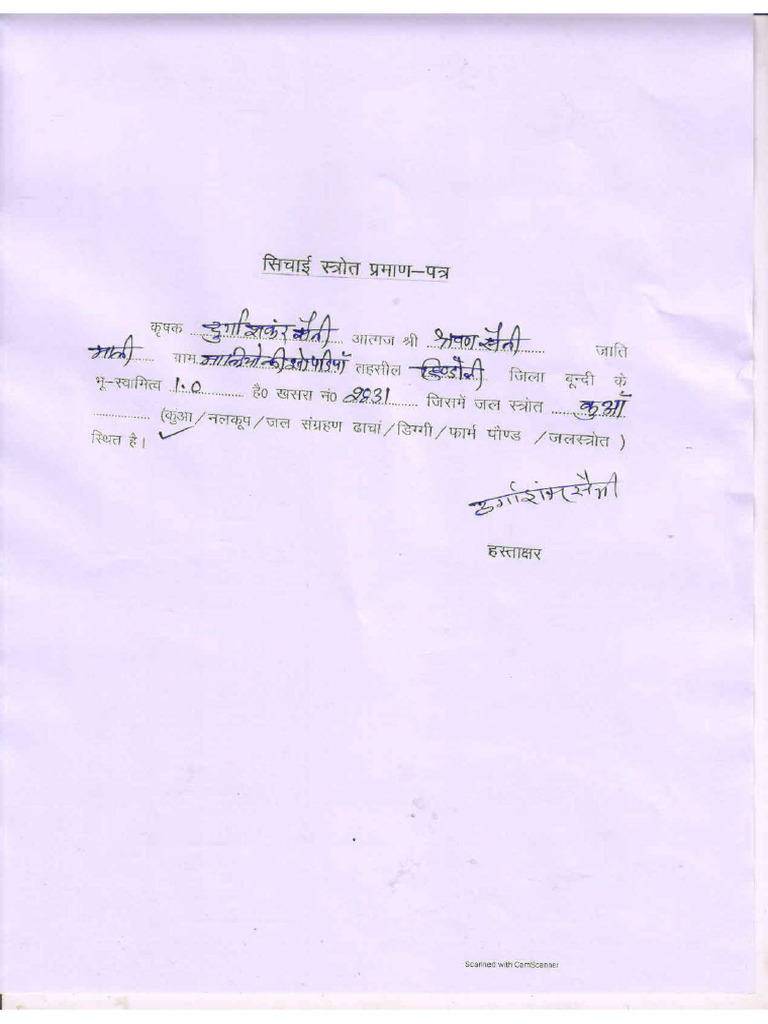 सिचाई स्त्रोत प्रमाण–पत्र
कृषक ..दुर्गाशकंर सैनी.. आत्मज श्री ..श्रवण सैनी............ जाति
माली........ ग्राम.मालियो की झोपडियाँ तहसील .हिण्डौली.. जिला बून्दी के
भू–स्वामित्व 1.0........... है० खसरा नं० 2631......... जिसमें जल स्त्रोत .....कुआँ
............... (कुआ/नलकूप/जल संग्रहण ढाचां/डिग्गी/फार्म पौण्ड /जलस्त्रोत )
स्थित है। ✓
दुर्गाशंकर सैनी
हस्ताक्षर
Scanned with CamScanner